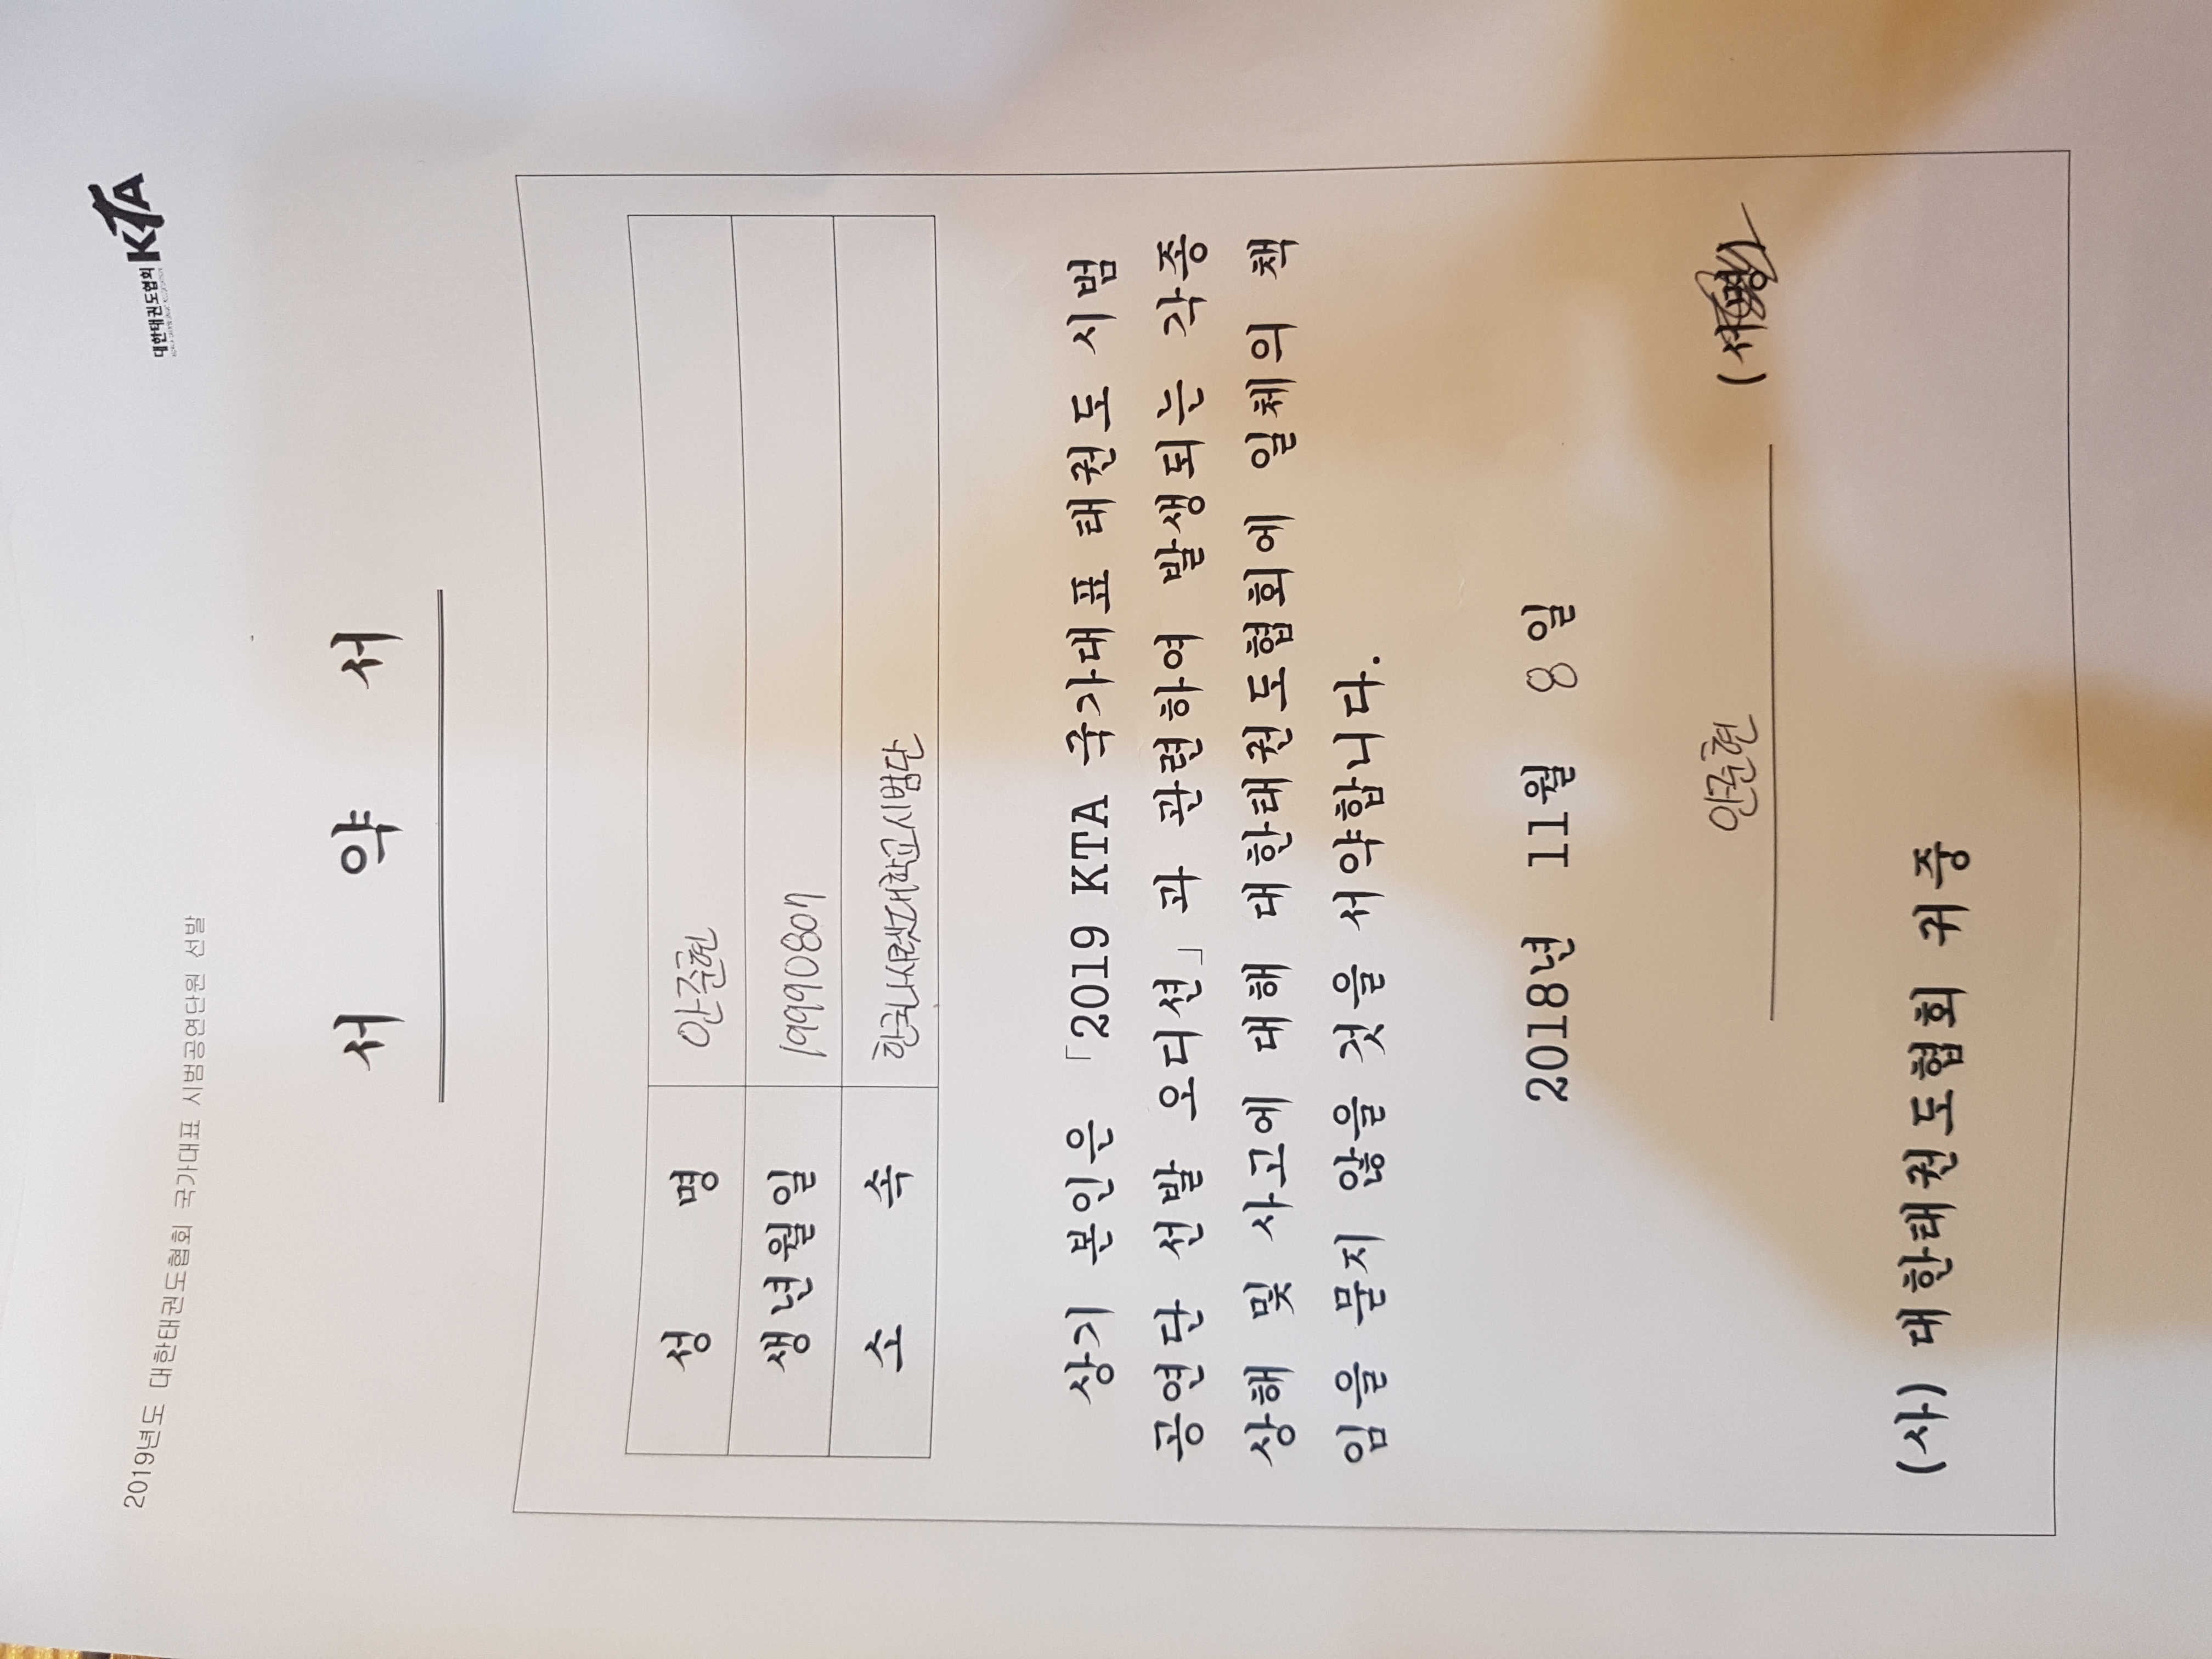 2019년도 대한태권도협회 국가대표 시범공연단원 선발
대한태권도협회 KTA
서 약 서
성 명 안준현
생년월일 19990807
소 속 한국나사렛대학교시범단
상기 본인은 「2019 KTA 국가대표 태권도 시범
공연단 선발 오디션」과 관련하여 발생되는 각종
상해 및 사고에 대해 대한태권도협회에 일체의 책
임을 묻지 않을 것을 서약합니다.
2018년 11월 8일
안준현 (서명)
(사) 대한태권도협회 귀중